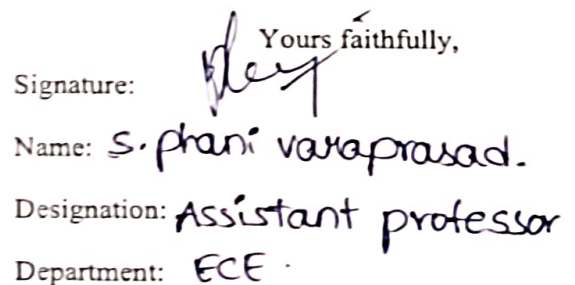 Yours faithfully,
Signature:
Name: S. phani varaprasad.
Designation: Assistant professor
Department: ECE.